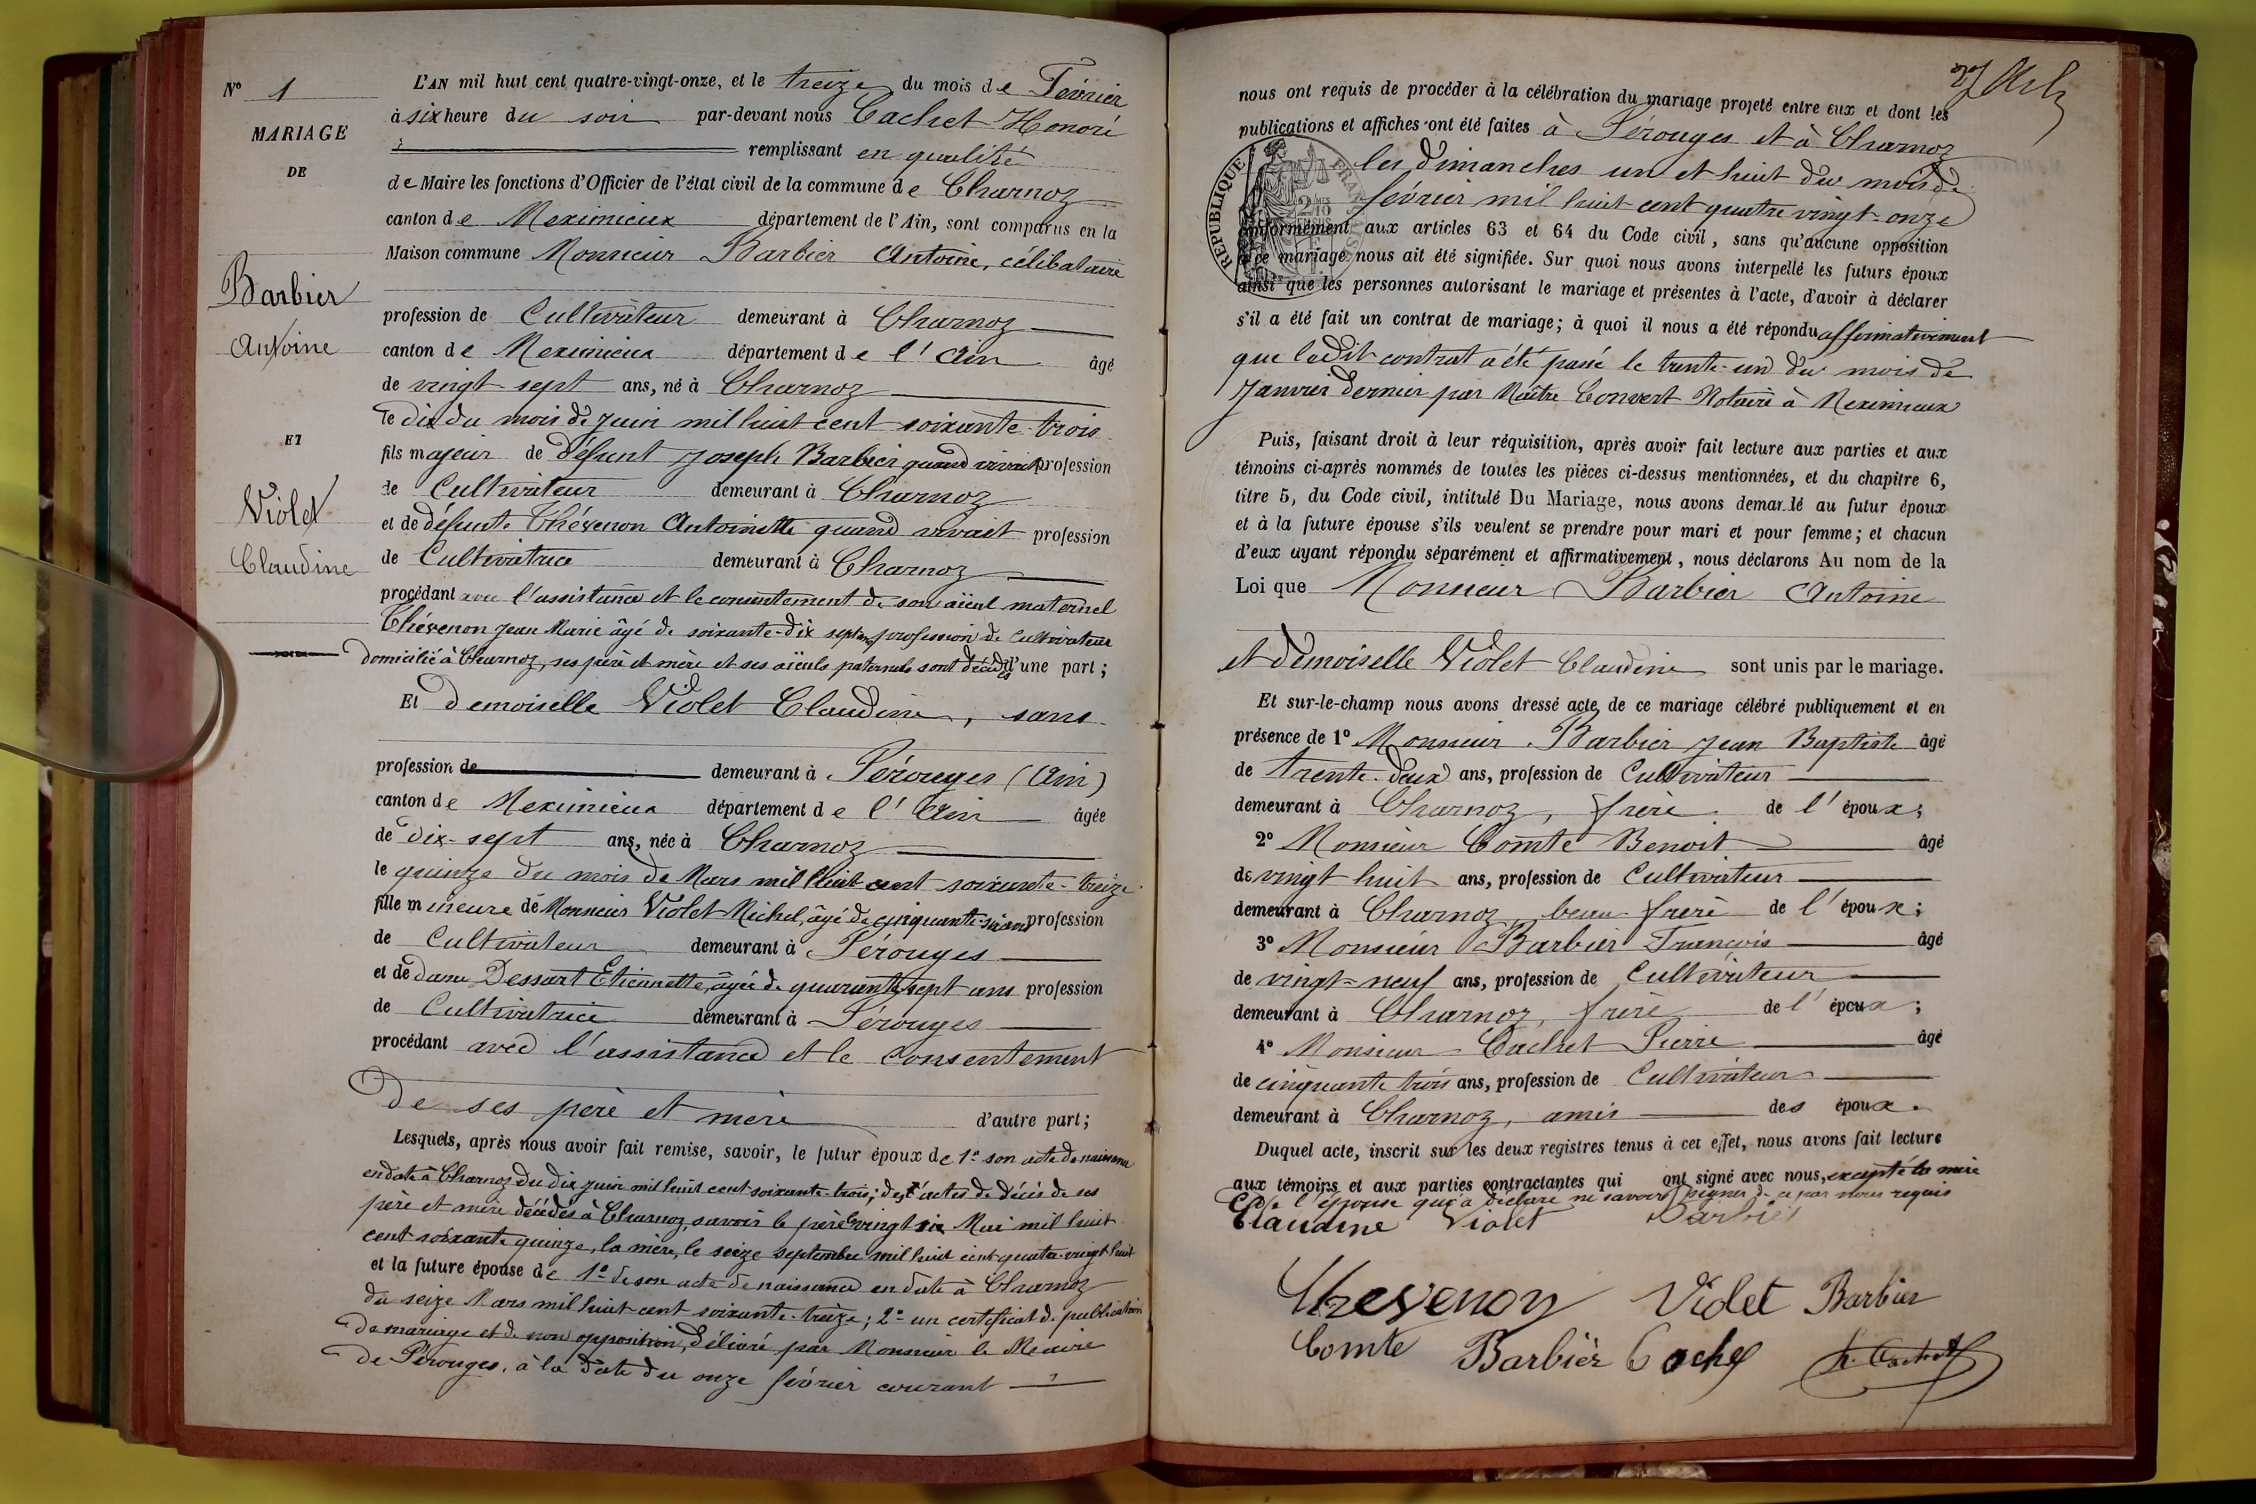 N° 1
MARIAGE
DE
Barbier
Antoine
ET
Violet
Claudine
L'AN mil huit cent quatre-vingt-onze, et le treize du mois de Février
à six heure du soir par-devant nous Cachet Honoré
remplissant en qualité
de Maire les fonctions d'Officier de l'état civil de la commune de Charnoz
canton de Meximieux département de l'Ain, sont comparus en la
Maison commune Monsieur Barbier Antoine, célibataire
profession de Cultivateur demeurant à Charnoz
canton de Meximieux département de l'Ain âgé
de vingt-sept ans, né à Charnoz
le dix du mois de Juin mil huit cent soixante-trois
fils majeur de défunt Joseph Barbier quand vivait profession
de Cultivateur demeurant à Charnoz
et de défunte Thévenon Antoinette quand vivait profession
de Cultivatrice demeurant à Charnoz
procédant avec l'assistance et le consentement de son aïeul maternel
Thévenon Jean Marie âgé de soixante-dix sept ans profession de Cultivateur
domicilié à Charnoz, ses père et mère et ses aïeuls paternels sont décédés d'une part ;
Et demoiselle Violet Claudine, sans
profession de demeurant à Pérouges (Ain)
canton de Meximieux département de l'Ain âgée
de dix-sept ans, née à Charnoz
le quinze du mois de Mars mil huit cent soixante-treize
fille mineure de Monsieur Violet Michel, âgé de cinquante-six ans profession
de Cultivateur demeurant à Pérouges
et de dame Dessart Etiennette, âgée de quarante sept ans profession
de Cultivatrice demeurant à Pérouges
procédant avec l'assistance et le consentement
de ses père et mère d'autre part ;
Lesquels, après nous avoir fait remise, savoir, le futur époux de 1° son acte de naissance
en date à Charnoz du dix juin mil huit cent soixante-trois; des actes de décès de ses
père et mère décédés à Charnoz, savoir le père vingt six Mai mil huit
cent soixante quinze, la mère, le seize septembre mil huit cent quatre-vingt huit
et la future épouse de 1° de son acte de naissance en date à Charnoz
du seize Mars mil huit cent soixante-treize; 2° un certificat de publication
de mariage et de non opposition, délivré par Monsieur le Maire
de Pérouges, à la date du onze février courant
nous ont requis de procéder à la célébration du mariage projeté entre eux et dont les
publications et affiches ont été faites à Pérouges et à Charnoz
les dimanches un et huit du mois de
février mil huit cent quatre vingt-onze
RÉPUBLIQUE FRANÇAISE
conformément aux articles 63 et 64 du Code civil, sans qu'aucune opposition
à ce mariage nous ait été signifiée. Sur quoi nous avons interpellé les futurs époux
ainsi que les personnes autorisant le mariage et présentes à l'acte, d'avoir à déclarer
s'il a été fait un contrat de mariage ; à quoi il nous a été répondu affirmativement
que ledit contrat a été passé le trente-un du mois de
Janvier dernier par Maître Convert Notaire à Meximieux
Puis, faisant droit à leur réquisition, après avoir fait lecture aux parties et aux
témoins ci-après nommés de toutes les pièces ci-dessus mentionnées, et du chapitre 6,
titre 5, du Code civil, intitulé Du Mariage, nous avons demandé au futur époux
et à la future épouse s'ils veulent se prendre pour mari et pour femme ; et chacun
d'eux ayant répondu séparément et affirmativement, nous déclarons Au nom de la
Loi que Monsieur Barbier Antoine
et demoiselle Violet Claudine sont unis par le mariage.
Et sur-le-champ nous avons dressé acte de ce mariage célébré publiquement et en
présence de 1° Monsieur Barbier Jean Baptiste âgé
de trente-deux ans, profession de Cultivateur
demeurant à Charnoz, frère de l'époux ;
2° Monsieur Comte Benoit âgé
de vingt huit ans, profession de Cultivateur
demeurant à Charnoz, beau-frère de l'époux ;
3° Monsieur Barbier François âgé
de vingt-neuf ans, profession de Cultivateur
demeurant à Charnoz, frère de l'époux ;
4° Monsieur Cachet Pierre âgé
de cinquante trois ans, profession de Cultivateur
demeurant à Charnoz, amis des époux.
Duquel acte, inscrit sur les deux registres tenus à cet effet, nous avons fait lecture
aux témoins et aux parties contractantes qui ont signé avec nous, excepté la mère
de l'épouse qui a déclaré ne savoir signer de ce par nous requis
Claudine Violet Barbier
Thevenon Violet Barbier
Comte Barbier Cachet h. Cachet